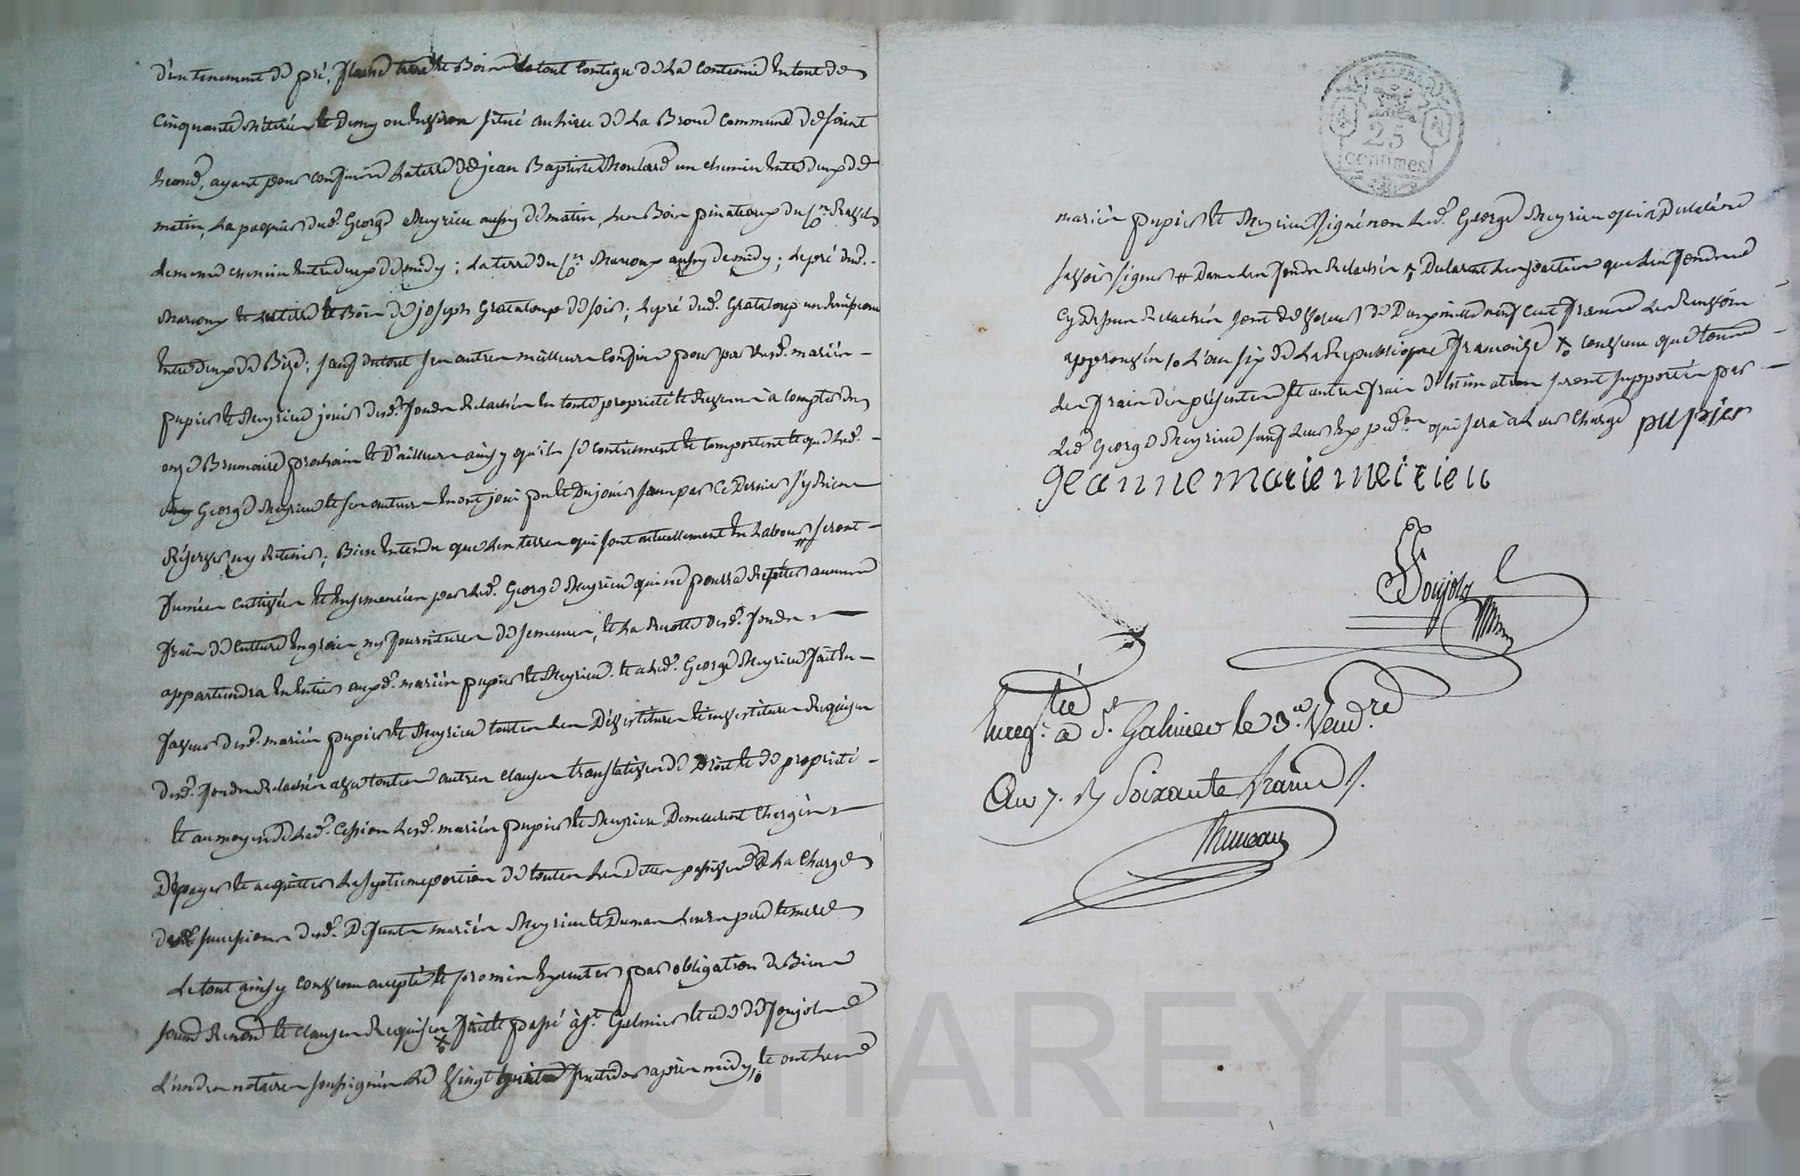 d'un tenement de pré, terre et Bois le tout contigu de la contenue en tout de
cinquante et demy ou environ situé au lieu de la Broue commune de saint
ayant pour confins la terre de jean Baptiste un chemin entre deux de
matin, la dud. George Meyrieu aussy de matin, les Bois pinateux du sr.
le meme chemin entre deux de midy; la terre du sr. Marcoux aussy de midy; le pré dud.
Marcoux et le Bois de joseph Grataloup de soir; le pré dud. Grataloup un ruisseau
entre deux de Bize; sauf du tout ses autres meilleurs confins pour par lesd. mariés
pupier et Meyrieu jouir desd. fonds relachés en toute propriété et revenus à compter du
onze Brumaire prochain et d'ailleurs ainsy qu'ils se contiennent et comportent et que led.
George Meyrieu et ses auteurs en ont joui pu et du jouir sans par ce dernier s'y rien
réserver ny retenir; Bien entendu que les terres qui sont actuellement en labour seront
fumées cultivées et ensemencées par led. George Meyrieu qui ne pourra repeter aucuns
frais de culture engrais ny fournitures de semences, et la recolte desd. fonds
appartiendra en entier auxd. mariés pupier et Meyrieu. et a led. George Meyrieu fait en
faveur desd. mariés pupier et Meyrieu toutes les dévestitures et investitures requises
desd. fonds relachés avec toutes autres clauses translatives de droit et de propriété
et au moyen de lad. cession lesd. mariés pupier et Meyrieu demeurent chargés
de payer et acquitter la septieme portion de toutes les dettes passives à la charge
de successions desd. defunts mariés Meyrieu et Dumas leurs pere et mere
le tout ainsy convenu accepté et promis executer par obligation de Biens
soumis renoncé et clauses requises fait et passé à St. Galmier etude de foujols
l'un des notaires soussignés le vingt fructidor après midy et ont lesd.
25
centimes
mariés pupier et Meyrieu signé non led. George Meyrieu qui a declaré ne
savoir signer dans les fonds relachés declarent les parties que les fonds
cy dessus relachés sont de valeur de deux mille neuf cent francs
approuvés l'an six de la Republique française convenu que tous
les frais des présentes et autres frais d'estimation seront supportés par
led. George Meyrieu sauf leur expedon. qui sera à leur charge pupier
jeanne marie meirieu
foujols
Enregtré. à St. Galmier le 3 Vend.re
An 7. R Soixante francs